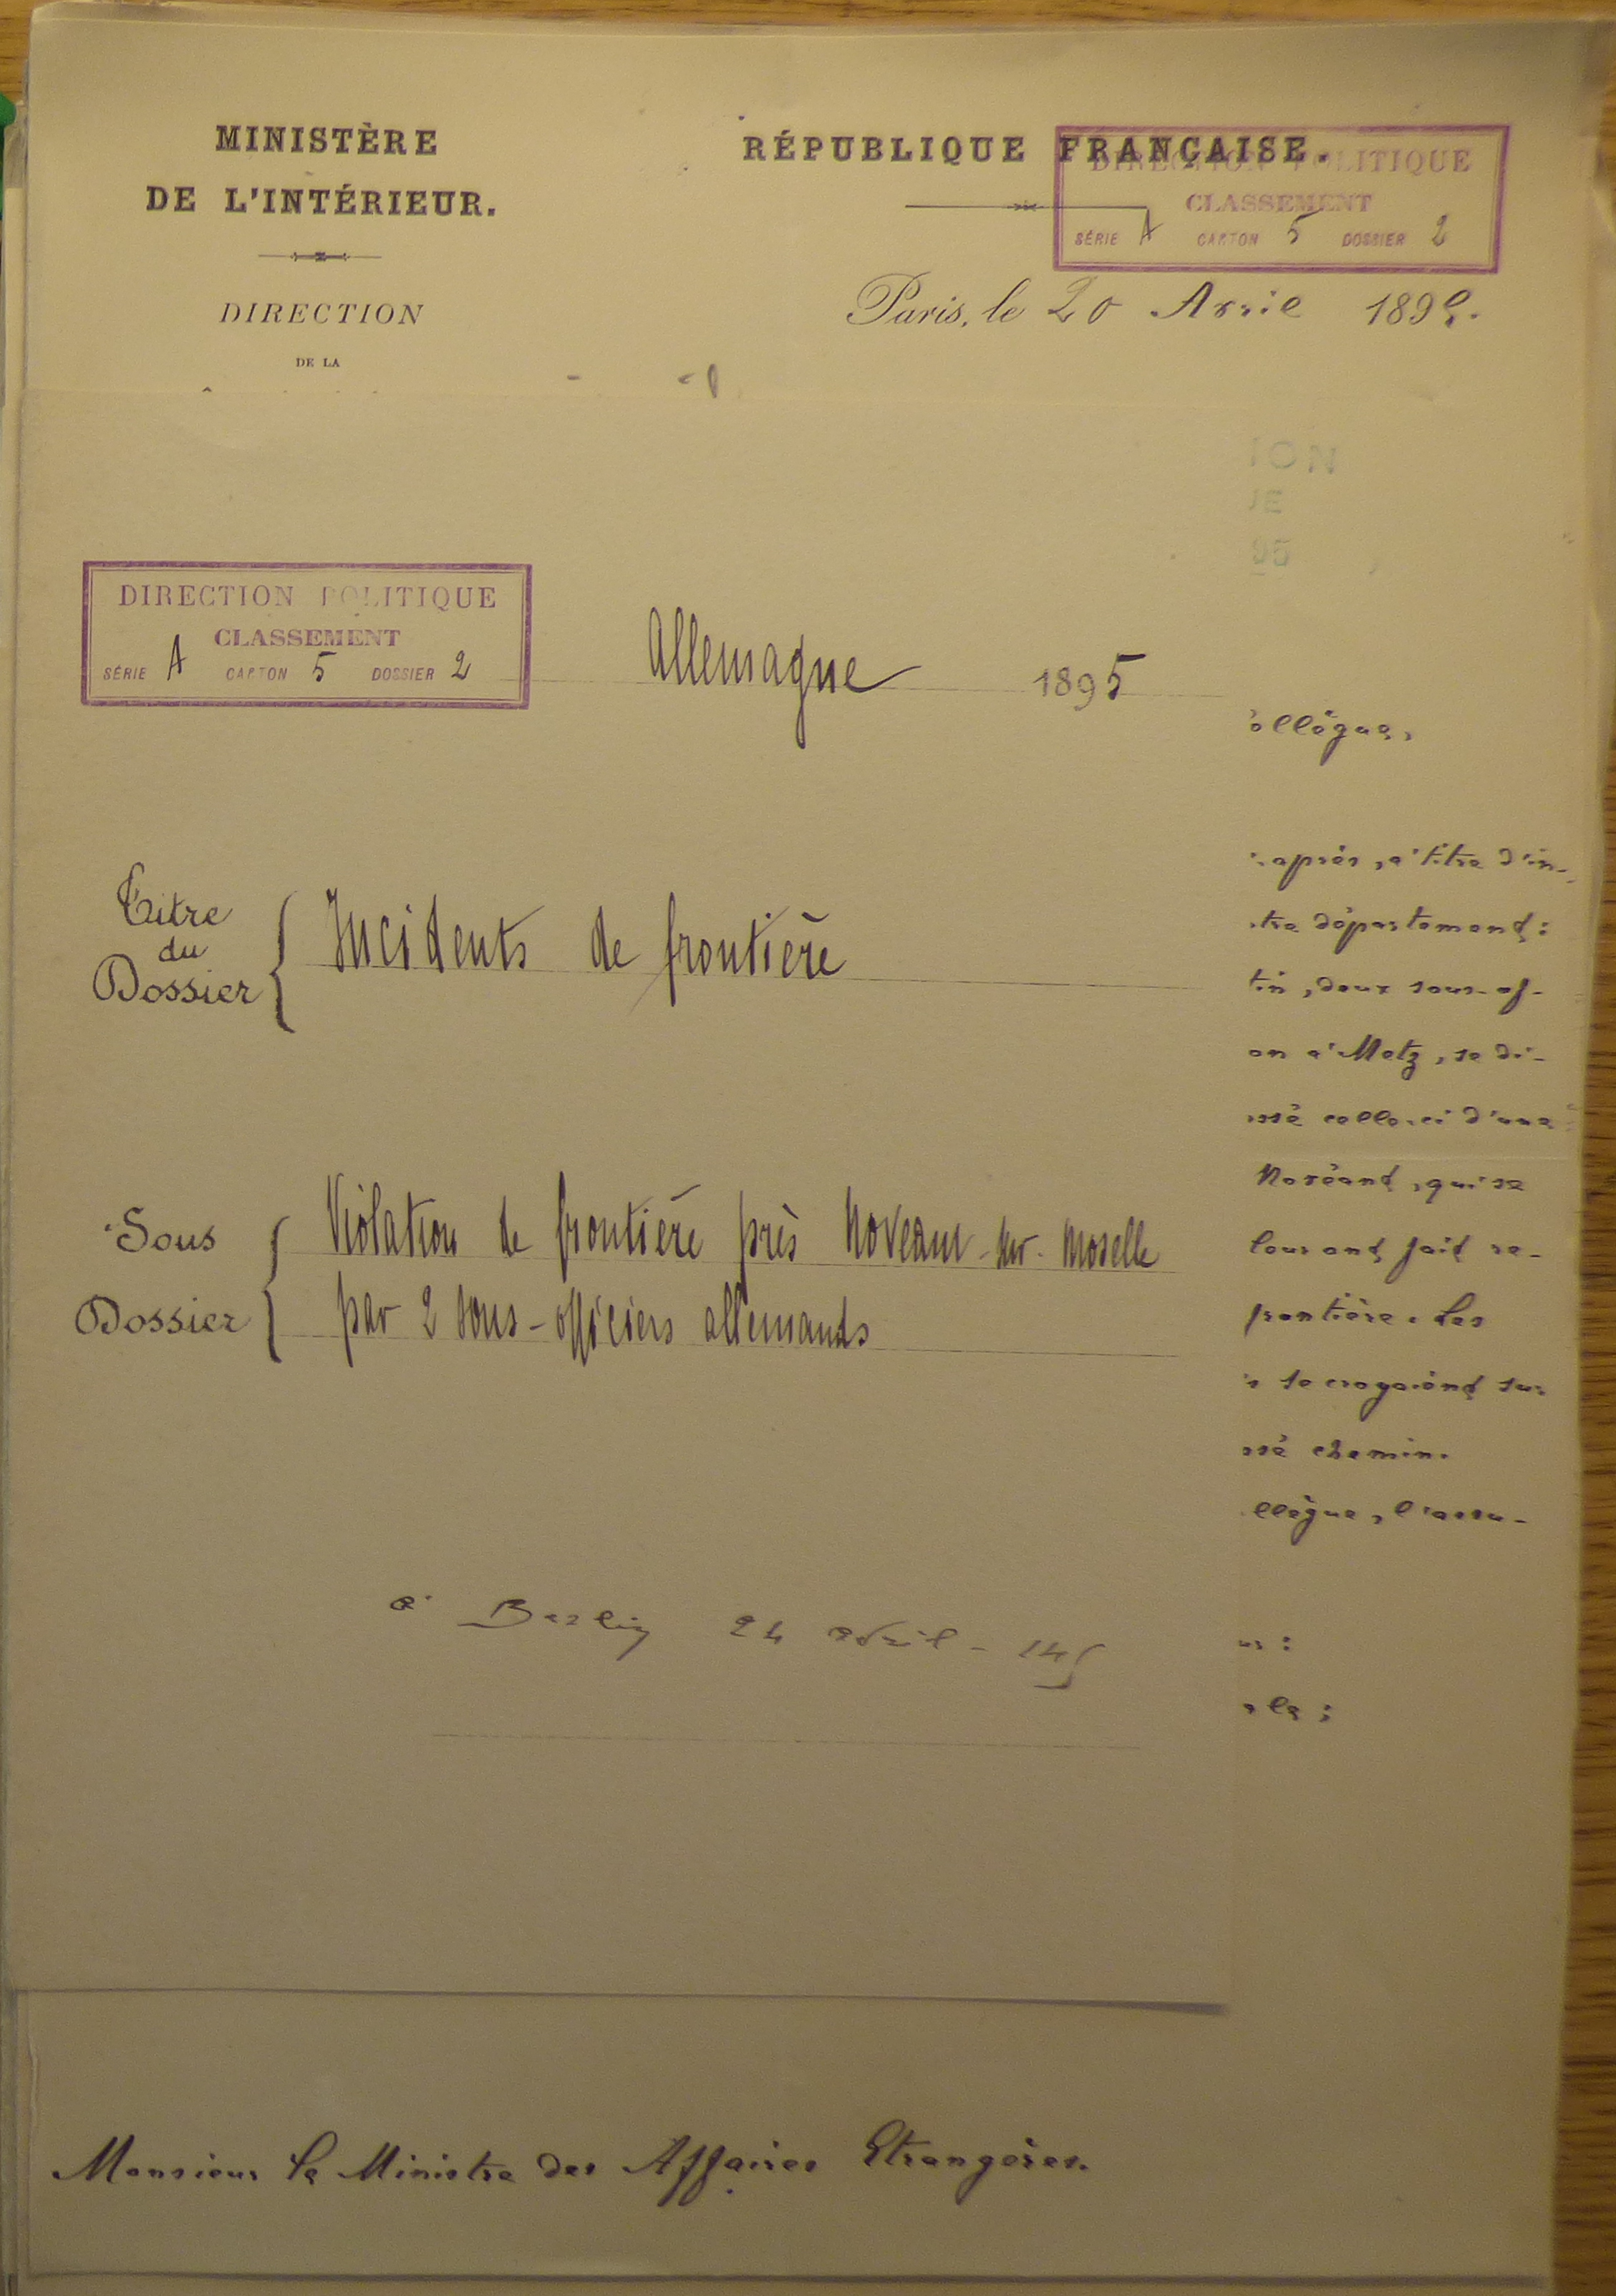 MINISTÈRE
DE L'INTÉRIEUR.
DIRECTION
DE LA
RÉPUBLIQUE FRANÇAISE.
DIRECTION POLITIQUE
CLASSEMENT
SÉRIE A CARTON 5 DOSSIER 2
Paris, le 20 Avril 1895.
ION
IE
95
DIRECTION POLITIQUE
CLASSEMENT
SÉRIE A CARTON 5 DOSSIER 2
Allemagne 1895
Titre
du
Dossier
Incidents de frontière
Sous
Dossier
Violation de frontière près Noveant-sur-Moselle
par 2 sous-officiers allemands
à Berlin 24 avril - 145
ollègue,
après, à titre d'in-
tre département:
tin, deux sous-of-
on à Metz, se di-
ssé celle-ci d'une
Novéant, qui se
leur ont fait re-
frontière. Les
s se croyaient sur
ssé chemin.
llègue, l'assu-
Monsieur le Ministre des Affaires Etrangères.